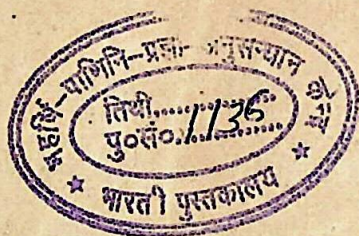 महर्षि-पाणिनि-प्रज्ञा-अनुसन्धान केन्द्र
तिथी..............
पु०सं०.1136..........
★ भारती पुस्तकालय ★